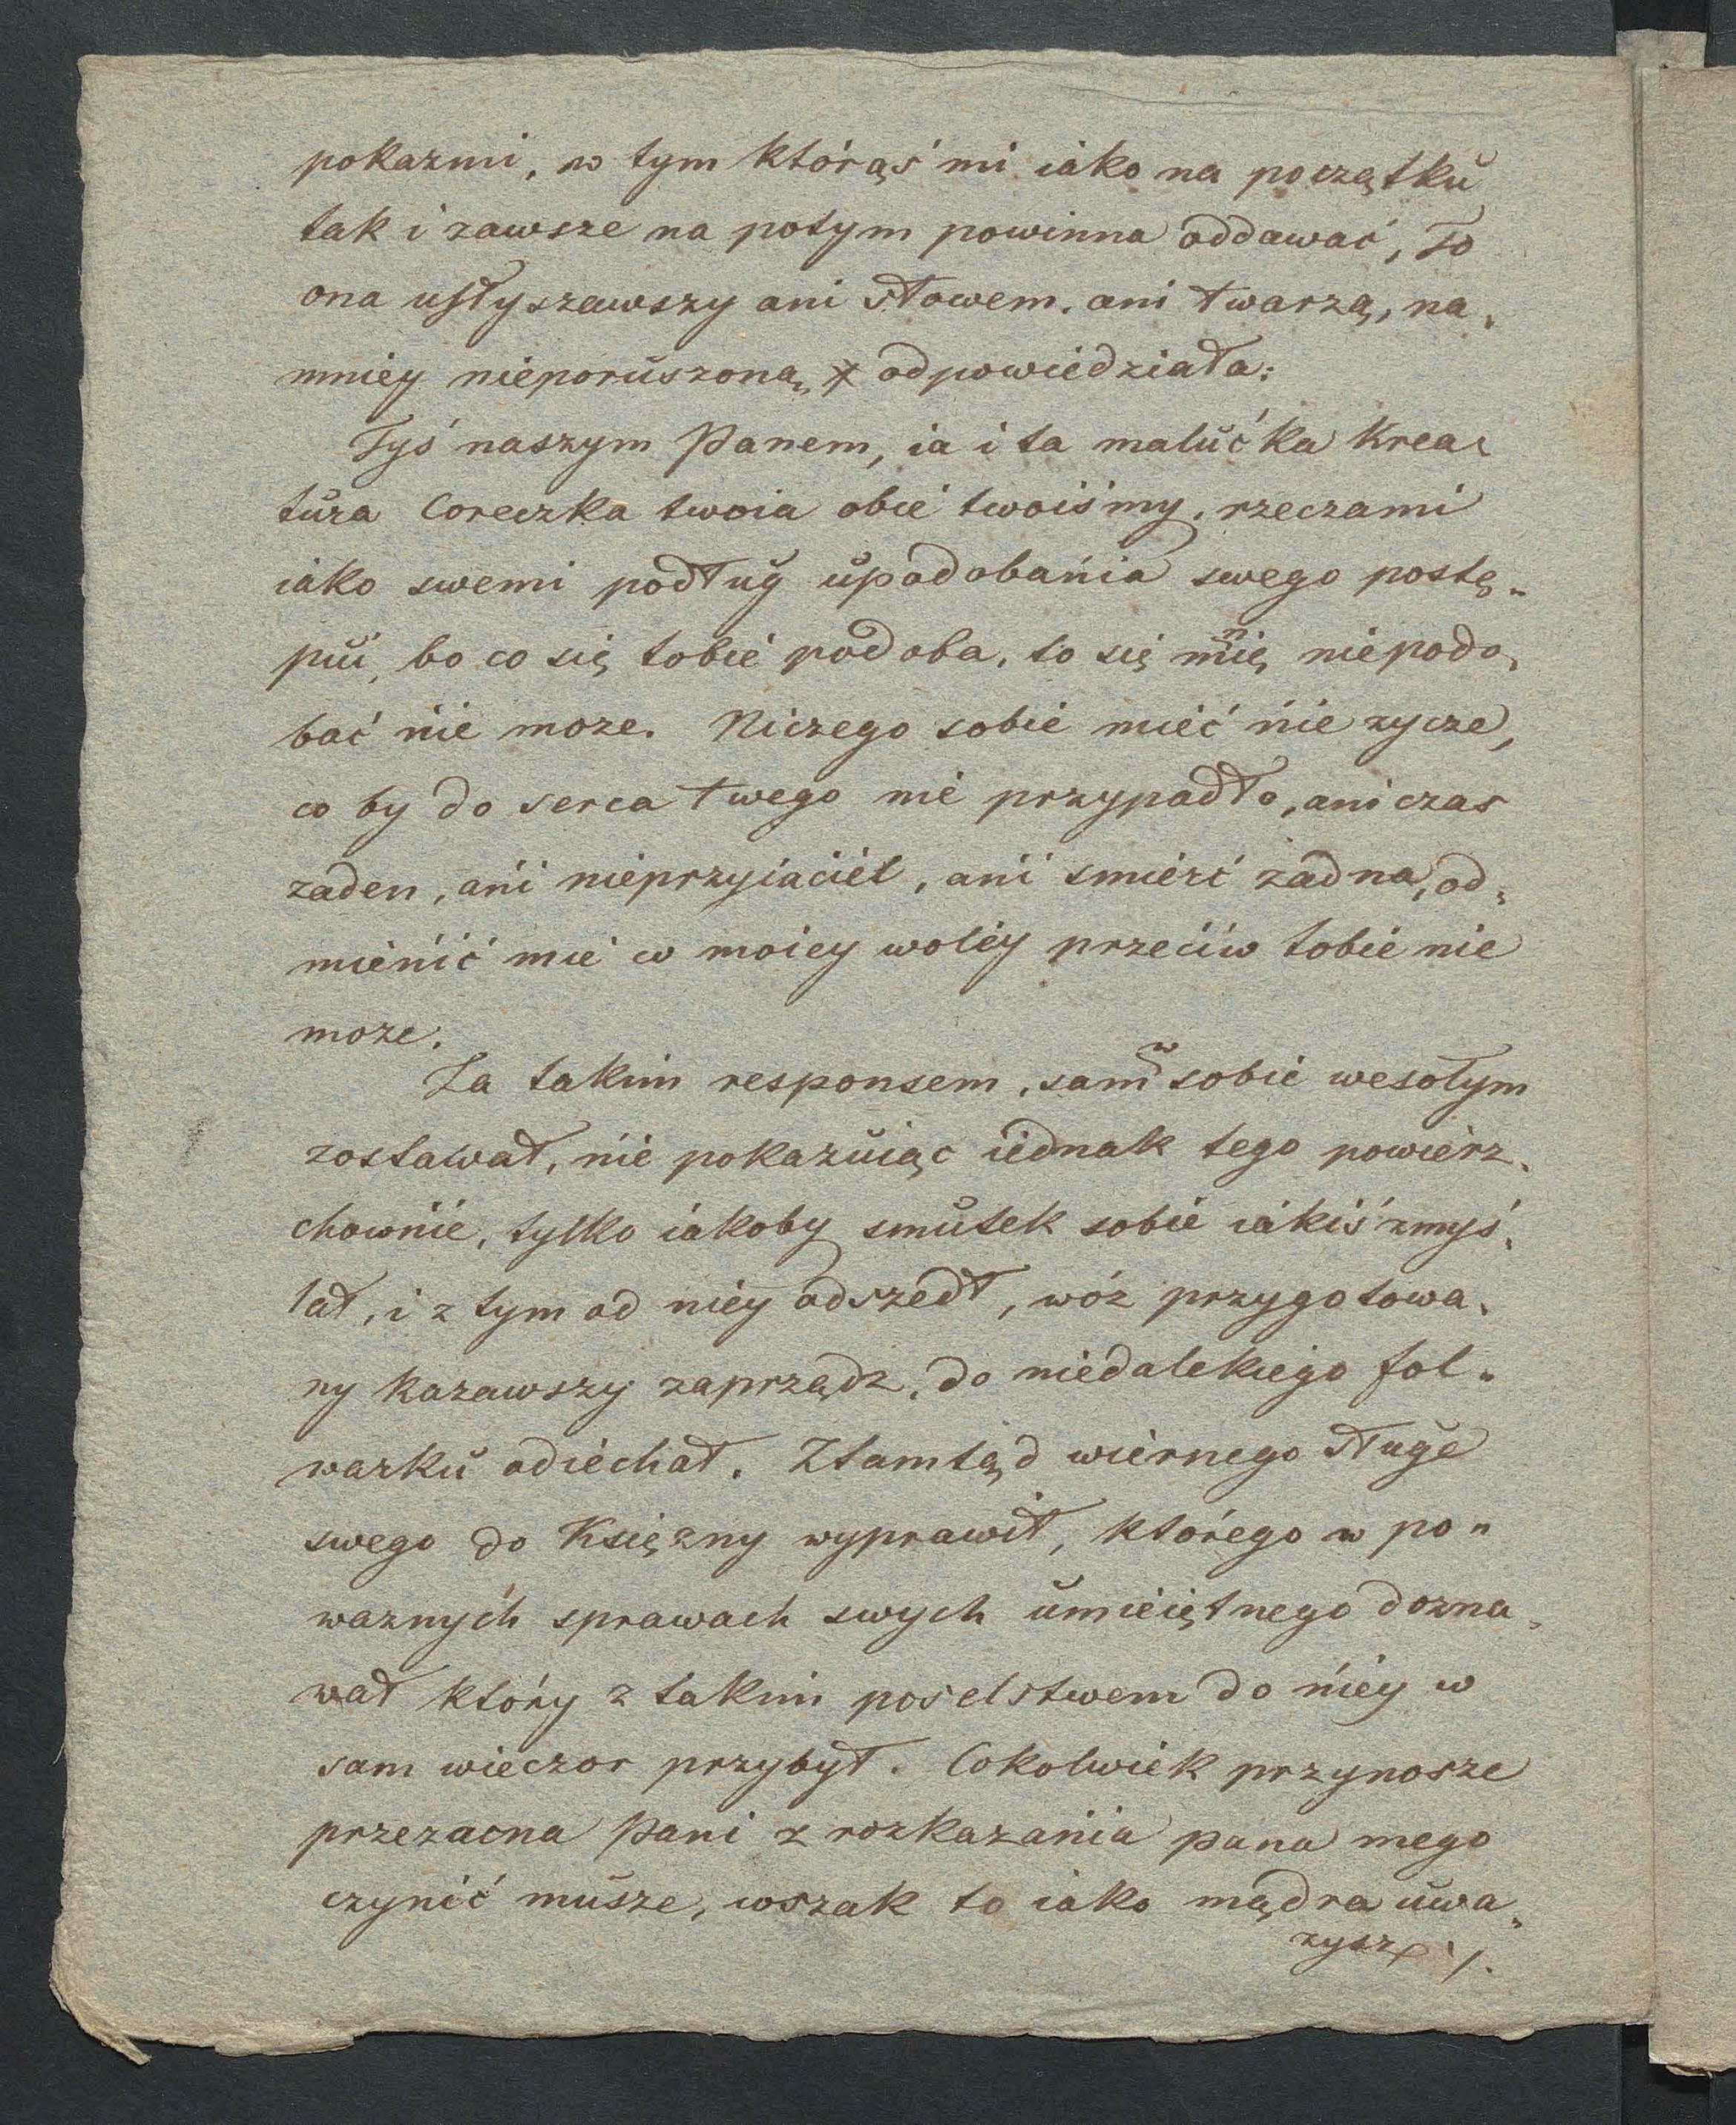 pokazmi, w tym którąś mi iako na początku
tak i zawsze na potym powinna oddawać, To
ona usłyszawszy ani słowem. ani twarzą, na„
mniey nieporuszoną, odpowiedziała:
Tyś naszym Panem, ia i ta malućka Krea„
tura Coreczka twoia obie twoiśmy, rzeczami
iako swemi podług upodobańia swego postę„
pui, bo co się tobie podoba, to się mnię niepodo„
bać nie moze. Niczego sobie mieć nie zycze,
co by do serca twego nie przypadło, ani czas
zaden, ani nieprzyiaciel, ani smierć zadna, od„
mienić mie w moiey woley przeciw tobie nie
moze.
Za takim responsem, sam w sobie wesołym
zostawał, nie pokazuiąc iednak tego powierz„
chownie, tylko iakoby smutek sobie iakiś zmyś„
lał, i z tym od niey odszedł, wóz przygotowa„
ny kazawszy zaprządz, do niedalekiego fol„
warku odiechał. Ztamtąd wiernego sługe
swego do Księzny wyprawił, którego w po„
waznych sprawach swych umieiętnego dozna„
wał który z takim poselstwem do niey w
sam wieczor przybył. Cokolwiek przynosze
przezacna Pani z rozkazania pana mego
czynić musze, wszak to iako mądra uwa„
zysz